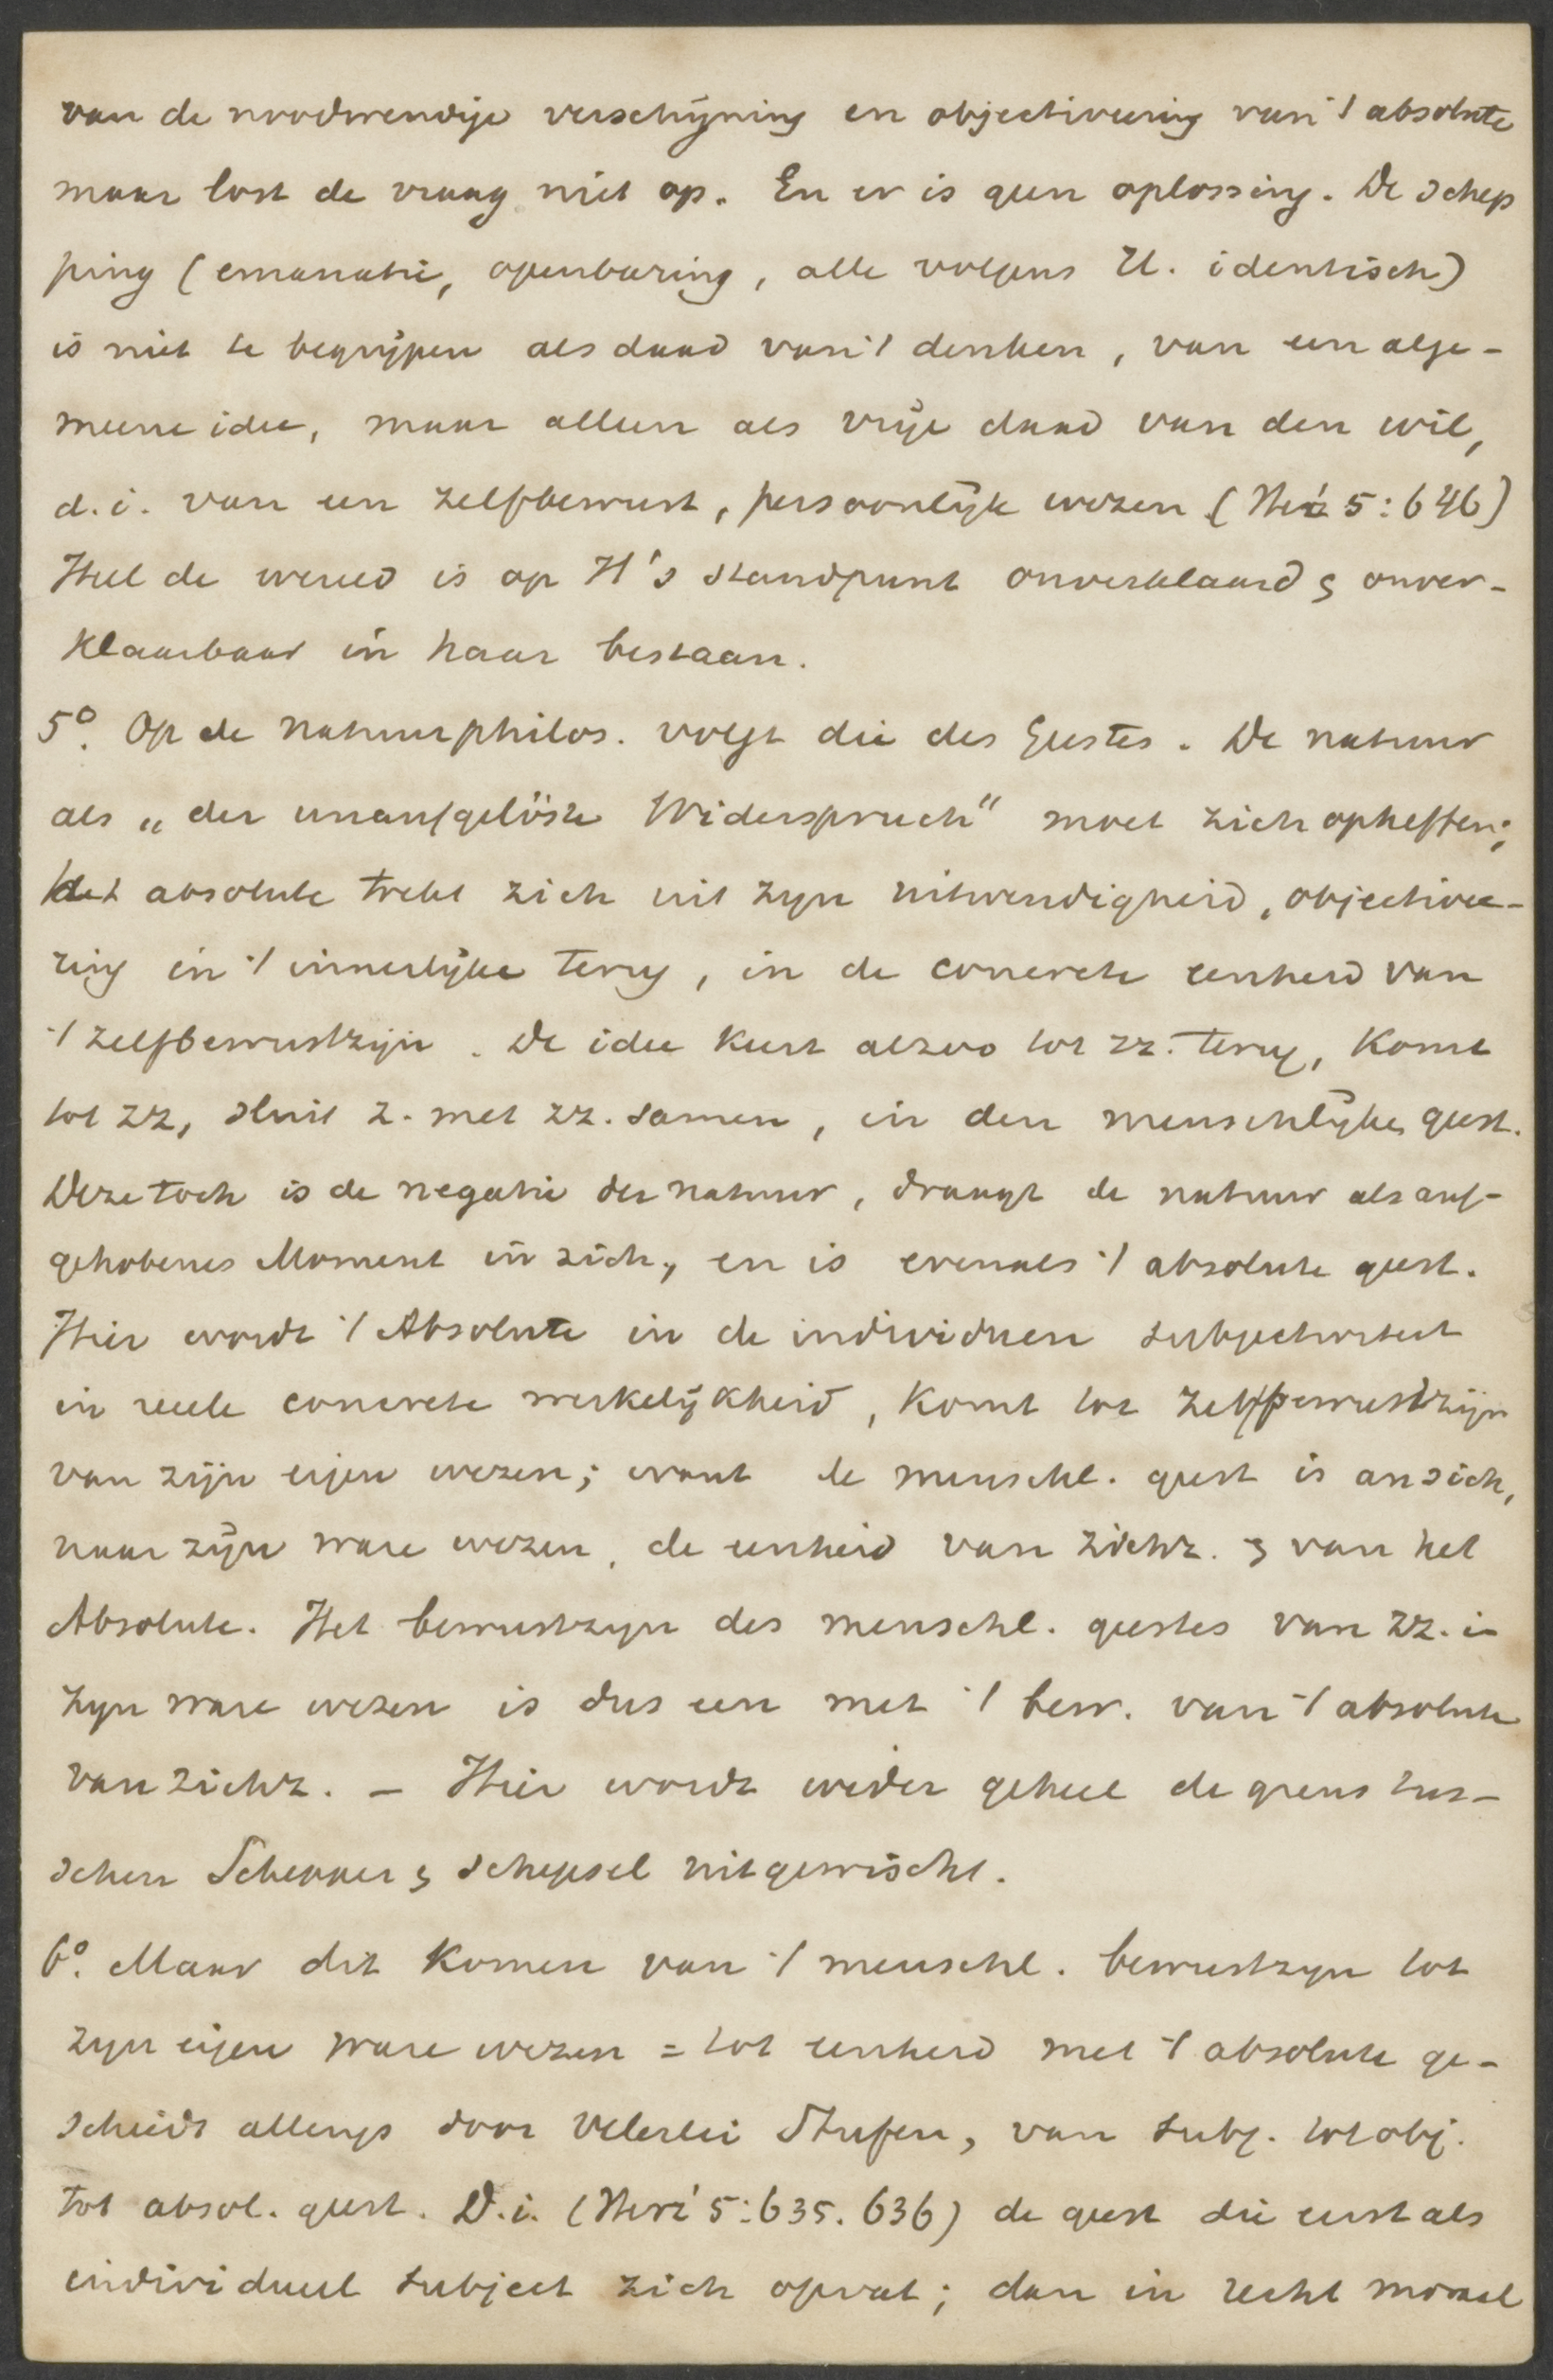 van de noodwendige verschijning en objectiveering van 't absolute
maar lost de vraag niet op. En er is geen oplossing. De schep
ping (emanatie, openbaring, alle volgens H. identisch)
is niet te begrijpen als daad van 't denken, van een alge-
meene idee, maar alleen als vrije daad van den wil,
d.i. van een zelfbewust, persoonlijk wezen ( 5:646)
Heel de wereld is op H's standpunt onverklaard & onver-
klaarbaar in haar bestaan.
5°. Op de natuurphilos. volgt die des Geestes. De natuur
als „der unaufgelöste Widerspruch" moet zich opheffen;
het absolute trekt zich uit zyn uitwendigheid, objectivee-
ring in 't innerlijke terug, in de concrete eenheid van
't zelfbewustzijn. De idee keert alzoo tot zz. terug, komt
tot zz, sluit z. met zz. samen, in den menschlijken geest.
Deze toch is de negatie der natuur, draagt de natuur als auf-
gehobenes Moment in zich, en is evenals 't absolute geest.
Hier wordt 't Absolute in de individuen subjectiviteit
in reele concrete werkelijkheid, komt tot zelfbewustzijn
van zijn eigen wezen; want de menschl. geest is an sich,
naar zijn ware wezen, de eenheid van zichz. & van het
Absolute. Het bewustzyn des menschl. geestes van zz. in
zyn ware wezen is dus een met 't bew. van 't absolute
van zichz. – Hier wordt weder geheel de grens tus-
schen Schepper & schepsel uitgewischt.
6°. Maar dit komen van 't menschl. bewustzyn tot
zyn eigen ware wezen = tot eenheid met 't absolute ge-
schiedt allengs door velerlei Stufen, van subj. tot obj.
tot absol. geest. D.i. ( 5:635. 636) de geest die eerst als
individueel subject zich opvat; dan in recht moraal